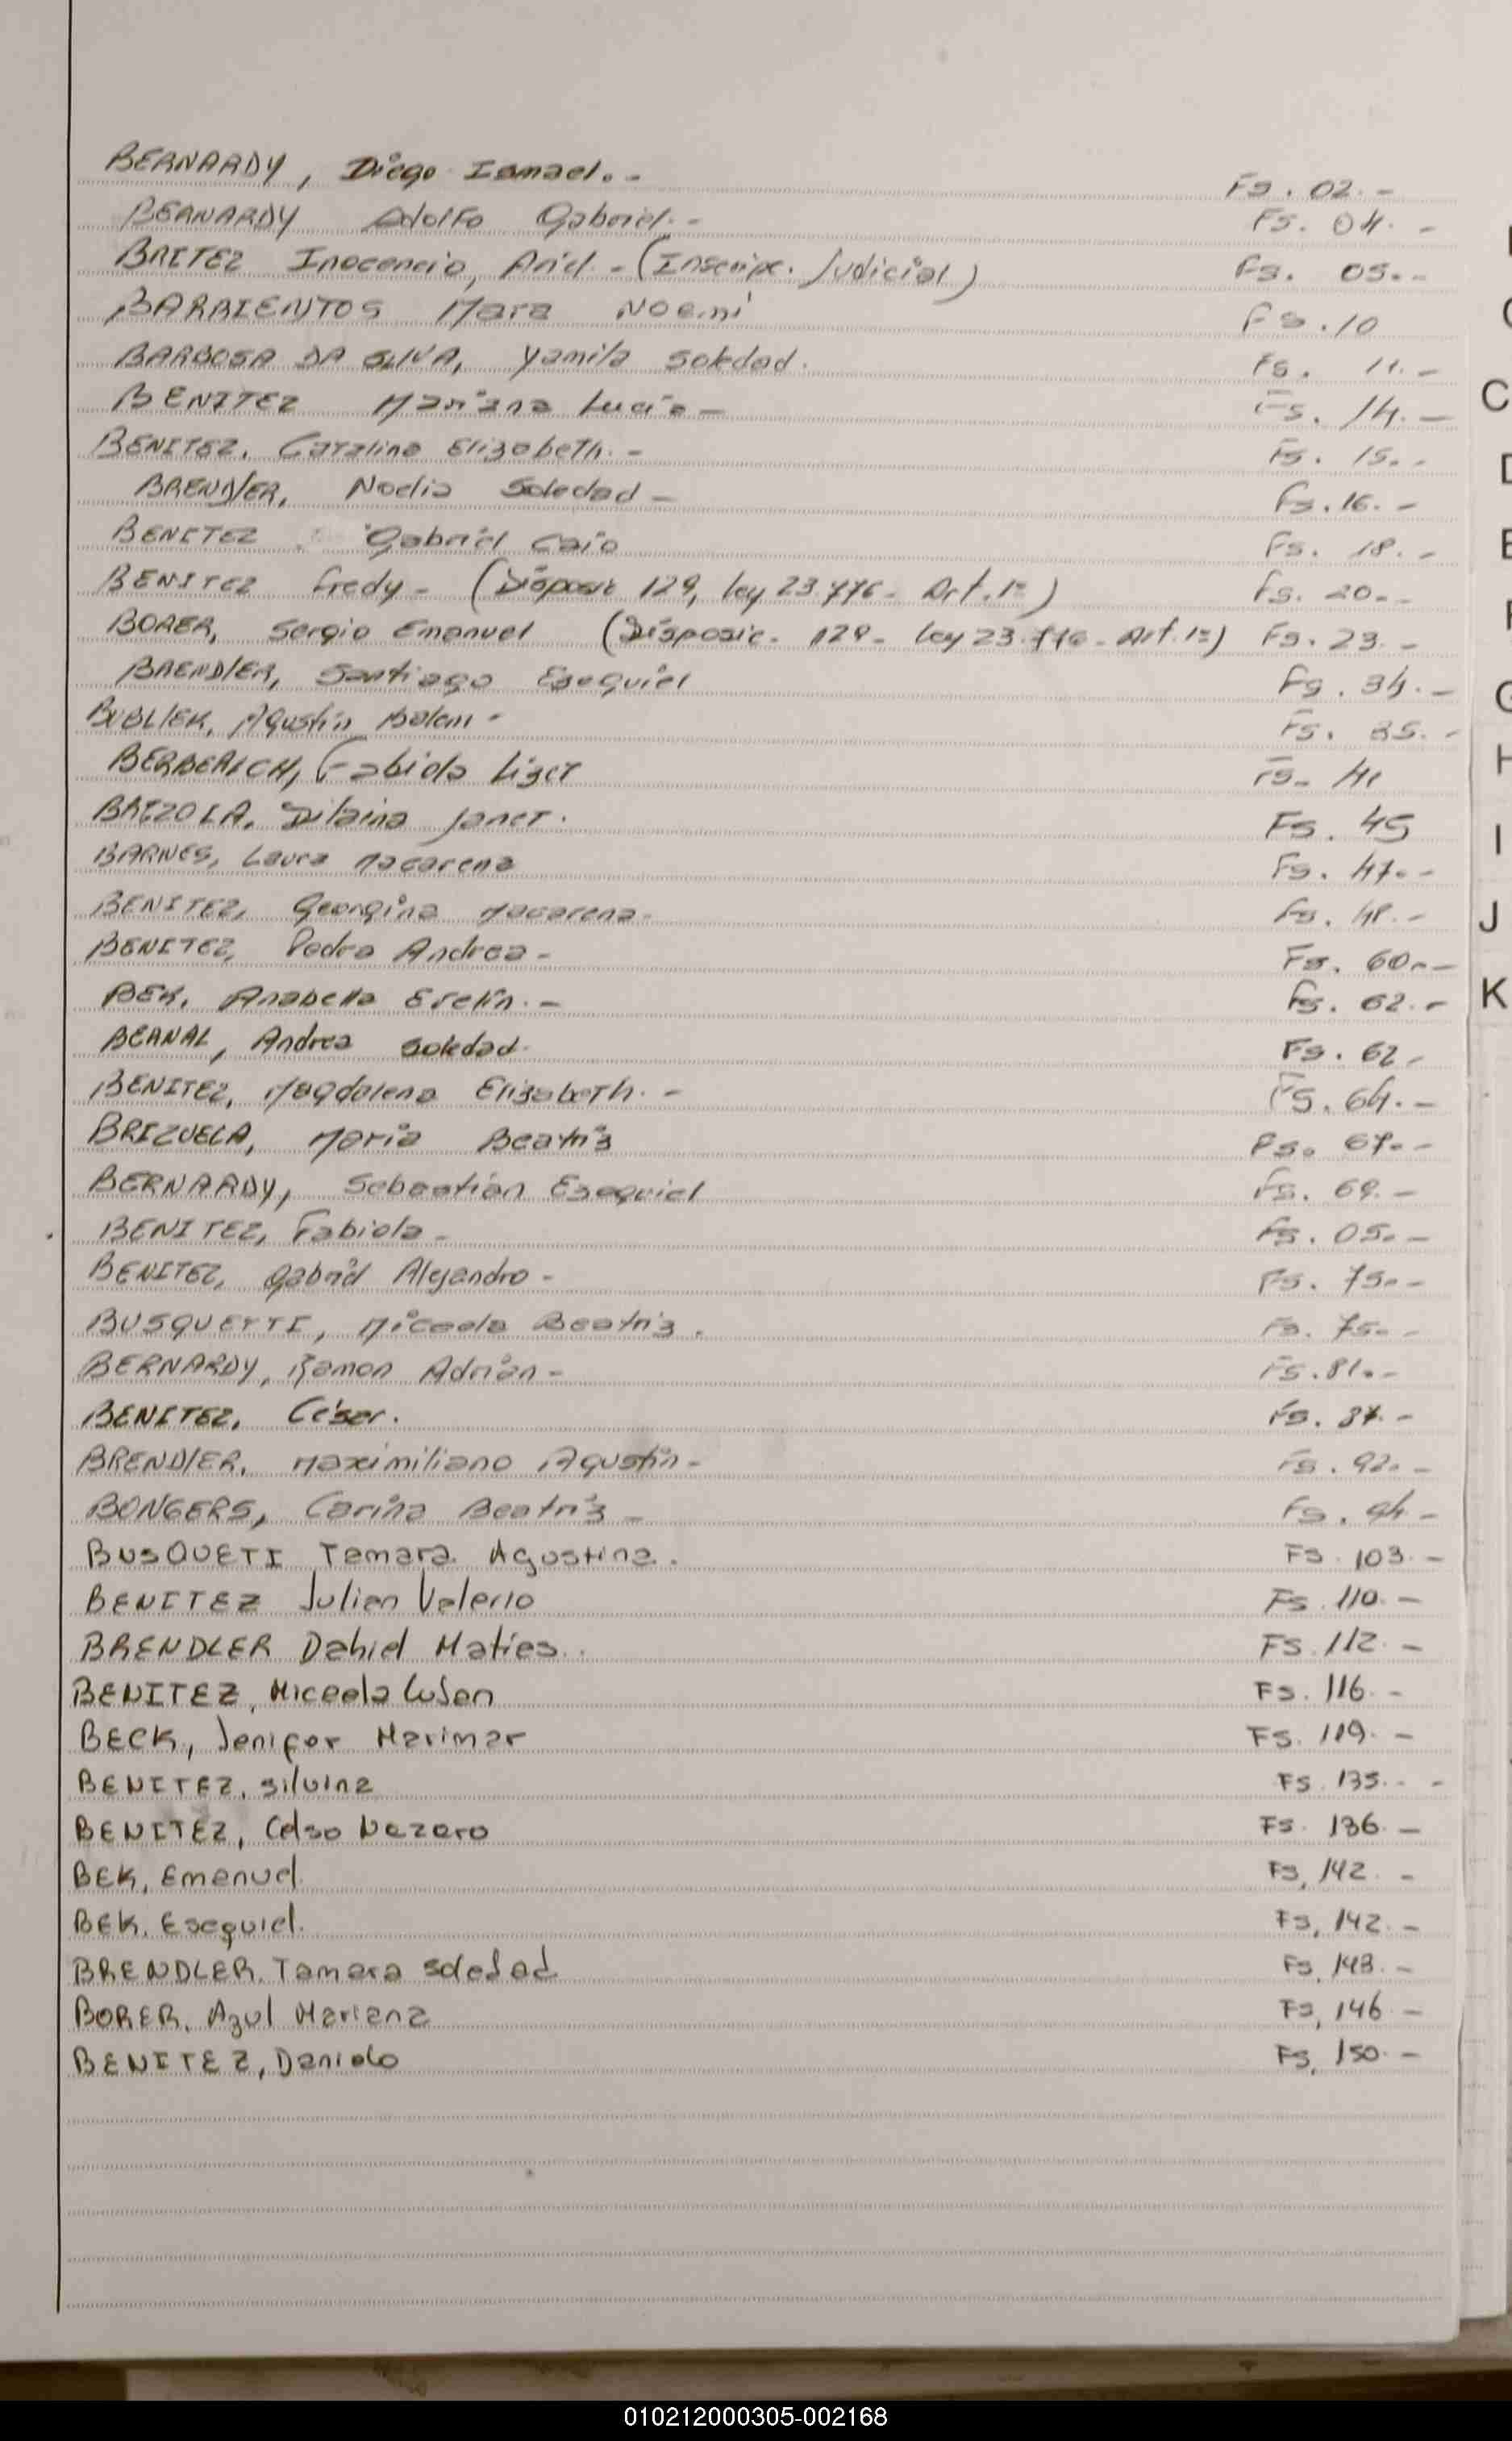 BERNARDY, Diego Ismael.- Fs. 02.-
BERNARDY Adolfo Gabriel.- Fs. 04.-
BRITEZ Inocencio, Ariel.- (Inscrip. Judicial) Fs. 05.-
BARRIENTOS Mara Noemí Fs. 10
BARBOSA DA SILVA, Yamila Soledad. Fs. 11.-
BENITEZ Mariana Lucía- Fs. 14.-
BENITEZ, Catalina Elizabeth.- Fs. 15.-
BRENDLER, Noelia Soledad- Fs. 16.-
BENITEZ Gabriel Caio Fs. 18.-
BENITEZ Fredy- (Disposic 129, ley 23.776- Art. 1º) Fs. 20.-
BORER, Sergio Emanuel (Disposic- 129- ley 23.776- Art. 1º) Fs. 23.-
BRENDLER, Santiago Esequiel Fs. 34.-
BUBLIEK, Agustín Fs. 35.-
BERBERICH, Fabiola Lizet Fs- 41
BAIZOLA, Janet. Fs. 45
BARNES, Laura Macarena Fs. 47.-
BENITEZ, Georgina Macarena- Fs. 48.-
BENITEZ, Pedro Andrea- Fs. 60.-
BEK, Anabella Evelín.- Fs. 62.-
BERNAL, Andrea Soledad. Fs. 62-
BENITEZ, Magdalena Elizabeth.- Fs. 64.-
BRIZUELA, María Beatriz Fs. 67.-
BERNARDY, Sebastián Esequiel Fs. 69.-
BENITEZ, Fabiola- Fs. 05.-
BENITEZ, Gabriel Alejandro- Fs. 75.-
BUSQUETTI, Micaela Beatriz. Fs. 75.-
BERNARDY, Ramon Adrián- Fs. 81.-
BENITEZ, César. Fs. 87.-
BRENDLER, Maximiliano Agustín- Fs. 92.-
BONGERS, Carina Beatriz- Fs. 94-
BUSQUETI Tamara Agostina. Fs. 103.-
BENITEZ Julian Valerio Fs. 110.-
BRENDLER Dahiel Matias.. Fs. 112.-
BENITEZ, Micaela Lujan Fs. 116.-
BECK, Jenifer Marimar Fs. 119.-
BENITEZ, Silvina Fs. 135.- -
BENITEZ, Celso Nazaro Fs. 136.-
BEK, Emanuel. Fs, 142.-
BEK, Esequiel. Fs, 142.-
BRENDLER, Tamara Soledad Fs, 143.-
BORER, Azul Mariana Fs, 146-
BENITEZ, Daniela Fs, 150.-
C
D
E
F
G
H
I
J
K
010212000305-002168